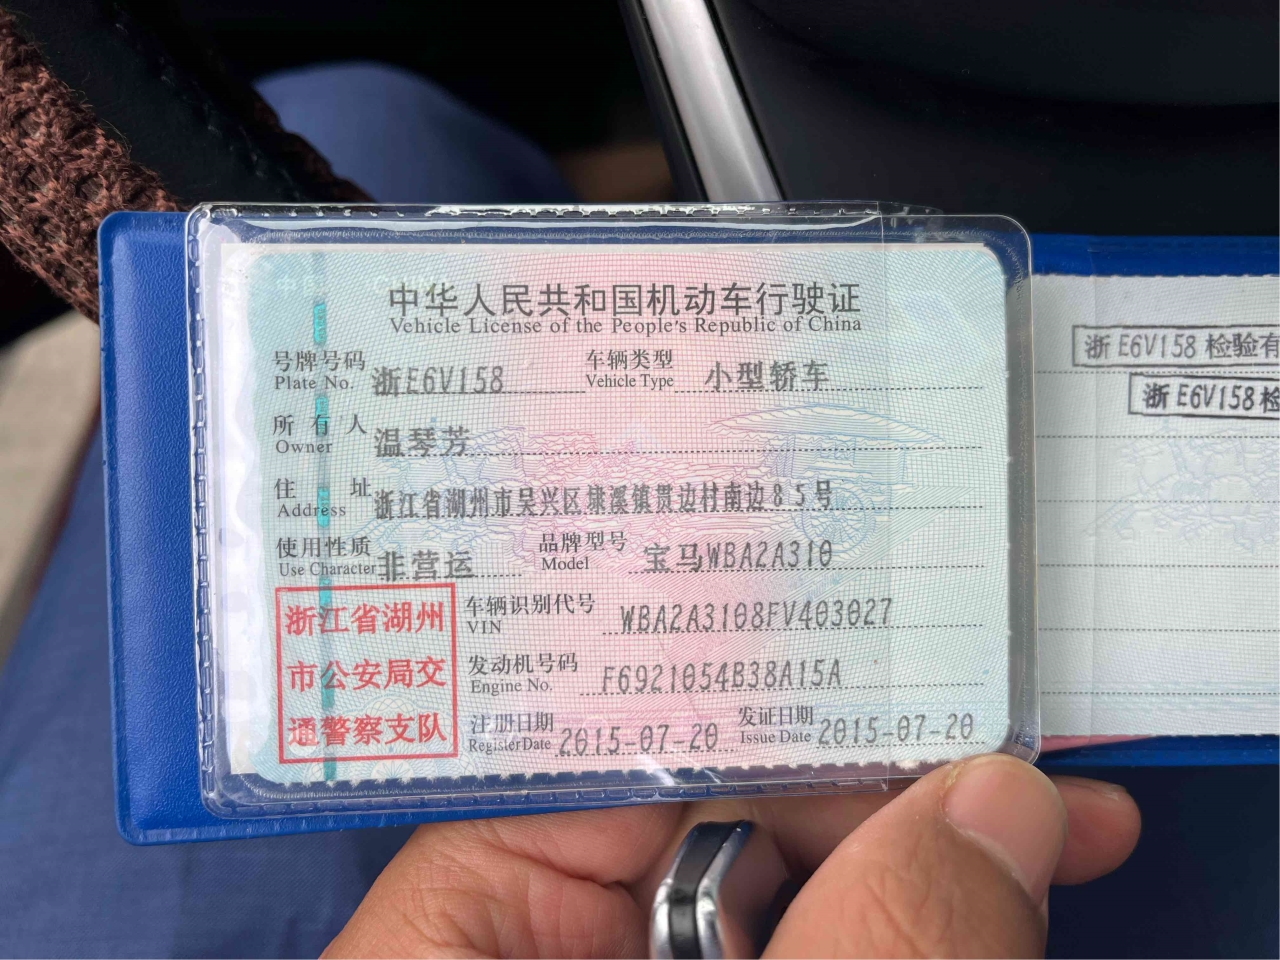 中华人民共和国机动车行驶证
Vehicle License of the People's Republic of China
号牌号码 浙E6V158 车辆类型 小型轿车
Plate No. Vehicle Type
所有人 温琴芳
Owner
住址 浙江省湖州市吴兴区埭溪镇贯边村南边85号
Address
使用性质 非营运 品牌型号 宝马WBA2A310
Use Character Model
浙江省湖州
市公安局交
通警察支队
车辆识别代号 WBA2A3108FV403027
VIN
发动机号码 F6921054B38A15A
Engine No.
注册日期 2015-07-20 发证日期 2015-07-20
Register Date Issue Date
浙E6V158 检验有
浙E6V158 检